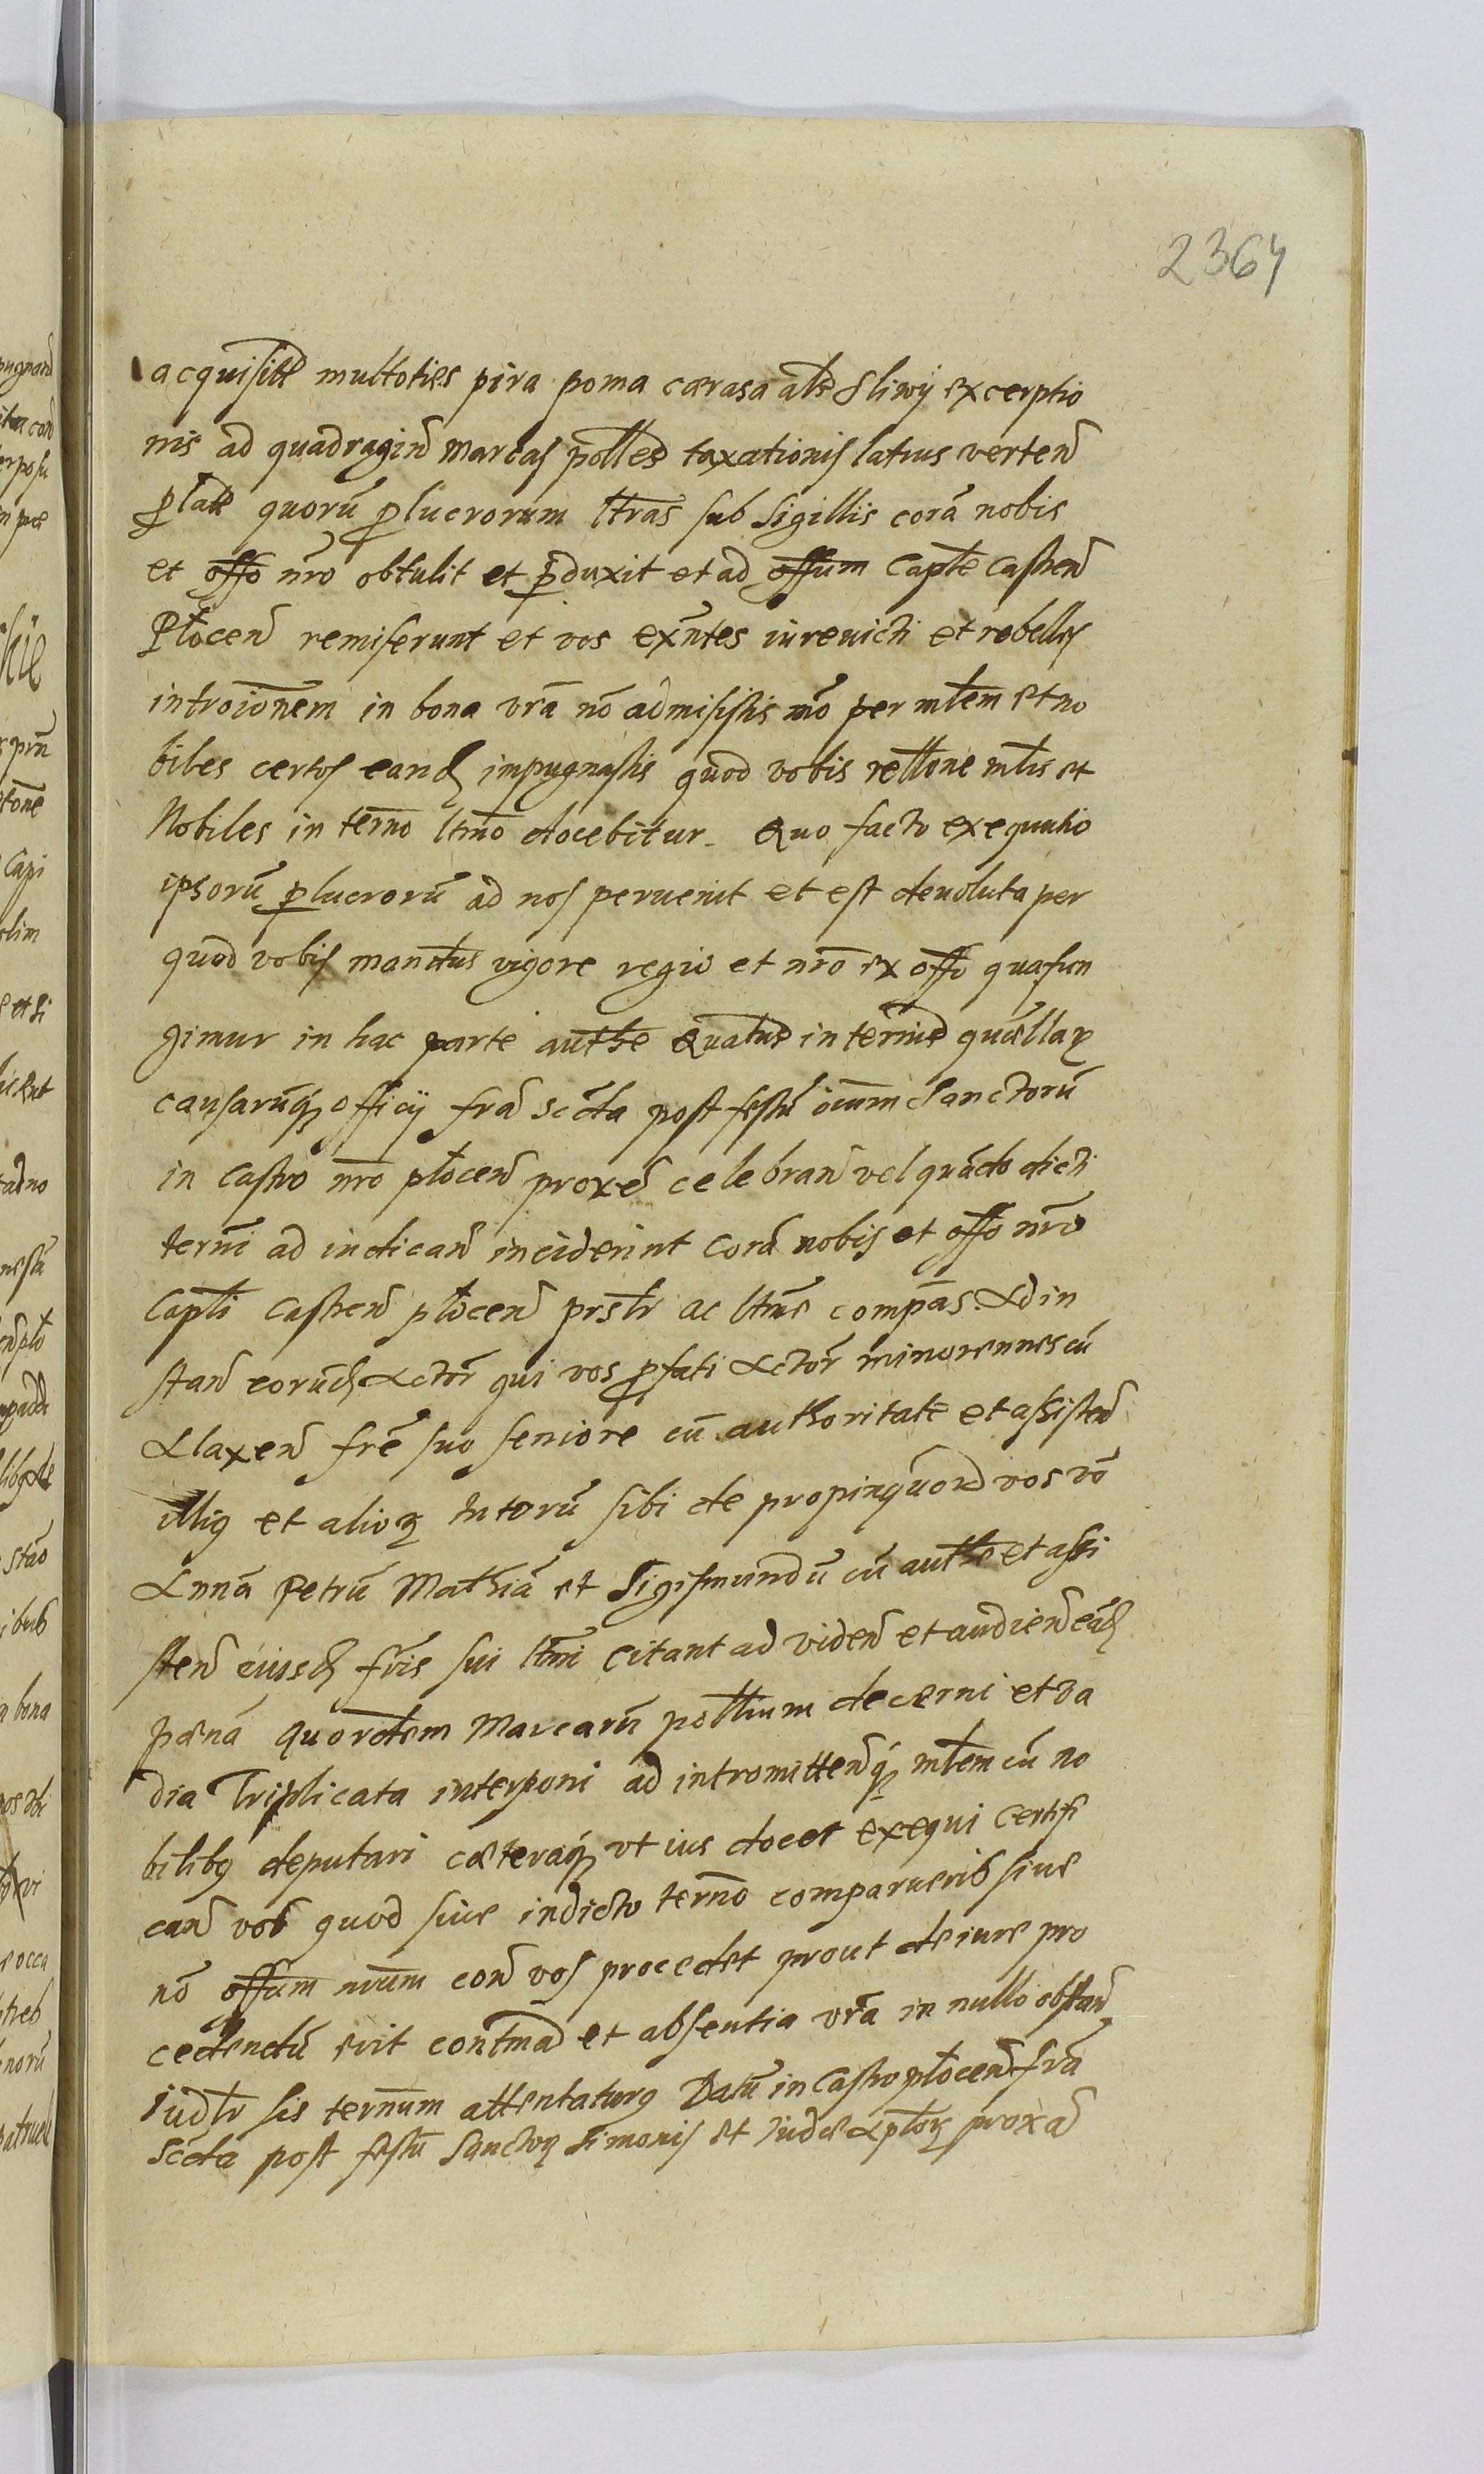 2364
acquisitẽ multoties pira poma cærasa als Sliwy excerptio
nis ad quadragin̄ marcas polles taxationis latius verten̄
plate quorū plucrorum lr̃as sub sigillis corā nobis
et offo nr̃o obtulit et pduxit et ad offum Caplẽ Castren̄
Plocen̄ remiserunt et vos exn̄tes iureuicti et rebelles
introiōnem in bona vr̃a nō admisistis īmo per mltem et no
biles certos eand impugnastis quod vobis relłone mltis et
Nobiles in term̄o ltm̄o docebitur. Quo facto exequutio
ipsorū plucrorū ad nos peruenit et est deuoluta per
quod vobis mandtus vigore regio et nr̃o ex offo quo fun
gimur in hac parte authe Quatus in termis quællarꝫ
causarūq officij fr̃a scda post festū oīum Sanctorū
in Castro nr̃o plocen̄ proxe celebran̄ vel quādo dicti
term̄i ad iudican̄ inciderint Corā nobis et offo nr̃o
Capli Castren̄ plocen̄ prsltr ac ltm̄e compas. Ad in
stan̄ eorūd Actor̄ qui vos pfati Actor̄ minorennes cū
Alaxen̄ fr̃e suo seniore cū authoritate et assisten̄
illiq et aliorꝫ tutorū sibi de propinquord vos vō
Annā Petrū Mathiā et Sigismundū cū authe et assi
sten̄ eiusd fr̃is sui ltm̄i Citant ad viden̄ et audien̄ eād
pœnā quordtem Marcarū polłium decerni et va
dia Triplicata interponi ad intromitten̄q mltem cū no
bilibꝫ deputari cæteraq vt ius docet exequi Certifi
can̄ vob quod siue in dicto term̄o comparuerib siue
nō offum nr̃um con̄ vos procedet prout de iure pro
cedendū erit contm̄a et absentia vr̃a in nullo obstan̄
Iudltr sis term̄um attentaturꝫ Datū in Castro plocen̄ fr̃a
scda post festū Sanctorꝫ Simonis et Iudæ Aplorꝫ proxa